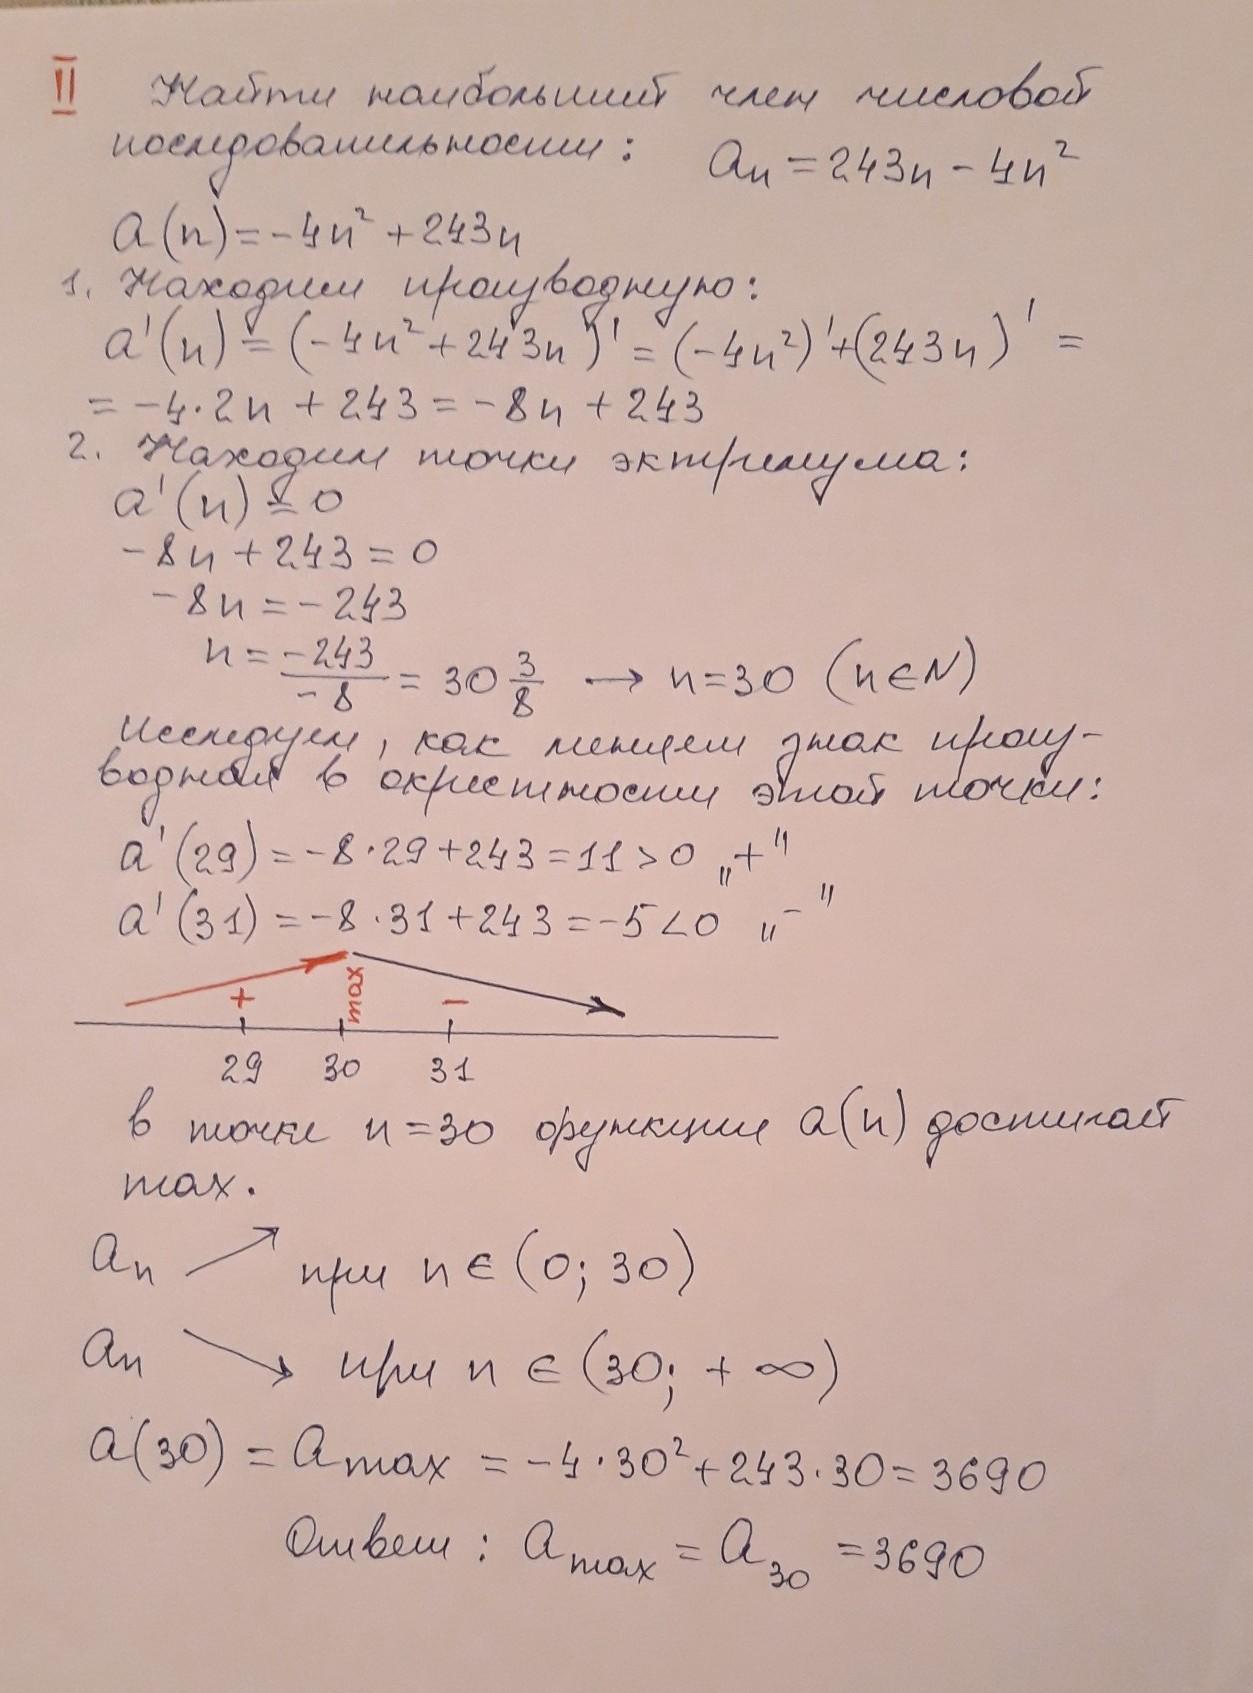 II Найти наибольший член числовой
последовательности: an = 243n - 4n²
a(n) = -4n² + 243n
1. Находим производную:
a'(n) = (-4n² + 243n)' = (-4n²)' + (243n)' =
= -4·2n + 243 = -8n + 243
2. Находим точки эктримума:
a'(n) = 0
-8n + 243 = 0
-8n = -243
n = -243/-8 = 30 3/8 → n=30 (n∈N)
Исследуем, как меняем знак произ-
водная в окрестности этой точки:
a'(29) = -8·29+243 = 11 > 0 „+"
a'(31) = -8·31+243 = -5 < 0 „-"
+ max −
29 30 31
в точке n=30 функции a(n) достигает
max.
an ↗ при n ∈ (0; 30)
an ↘ при n ∈ (30; +∞)
a(30) = amax = -4·30² + 243·30 = 3690
Ответ: amax = a30 = 3690